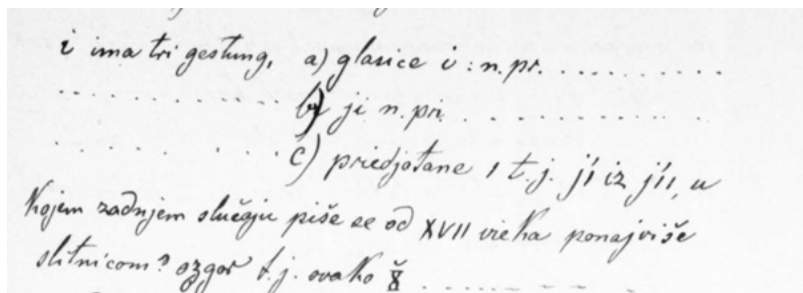 i ima tri geltung, a) glasice i : n. pr. . . . . . . . . . . .
. . . . . . . . . . . . . b) ji n. pr. . . . . . . . . . . . .
. . . . . . . . . c) predjotane i t. j. ji iz jíi, u
kojem zadnjem slučaju piše se od XVII vieka ponajviše
slitnicom? ozgor t. j. ovako . . . . . . . . .